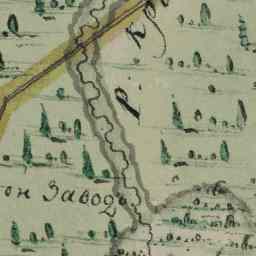 р. Кр
он Заводъ